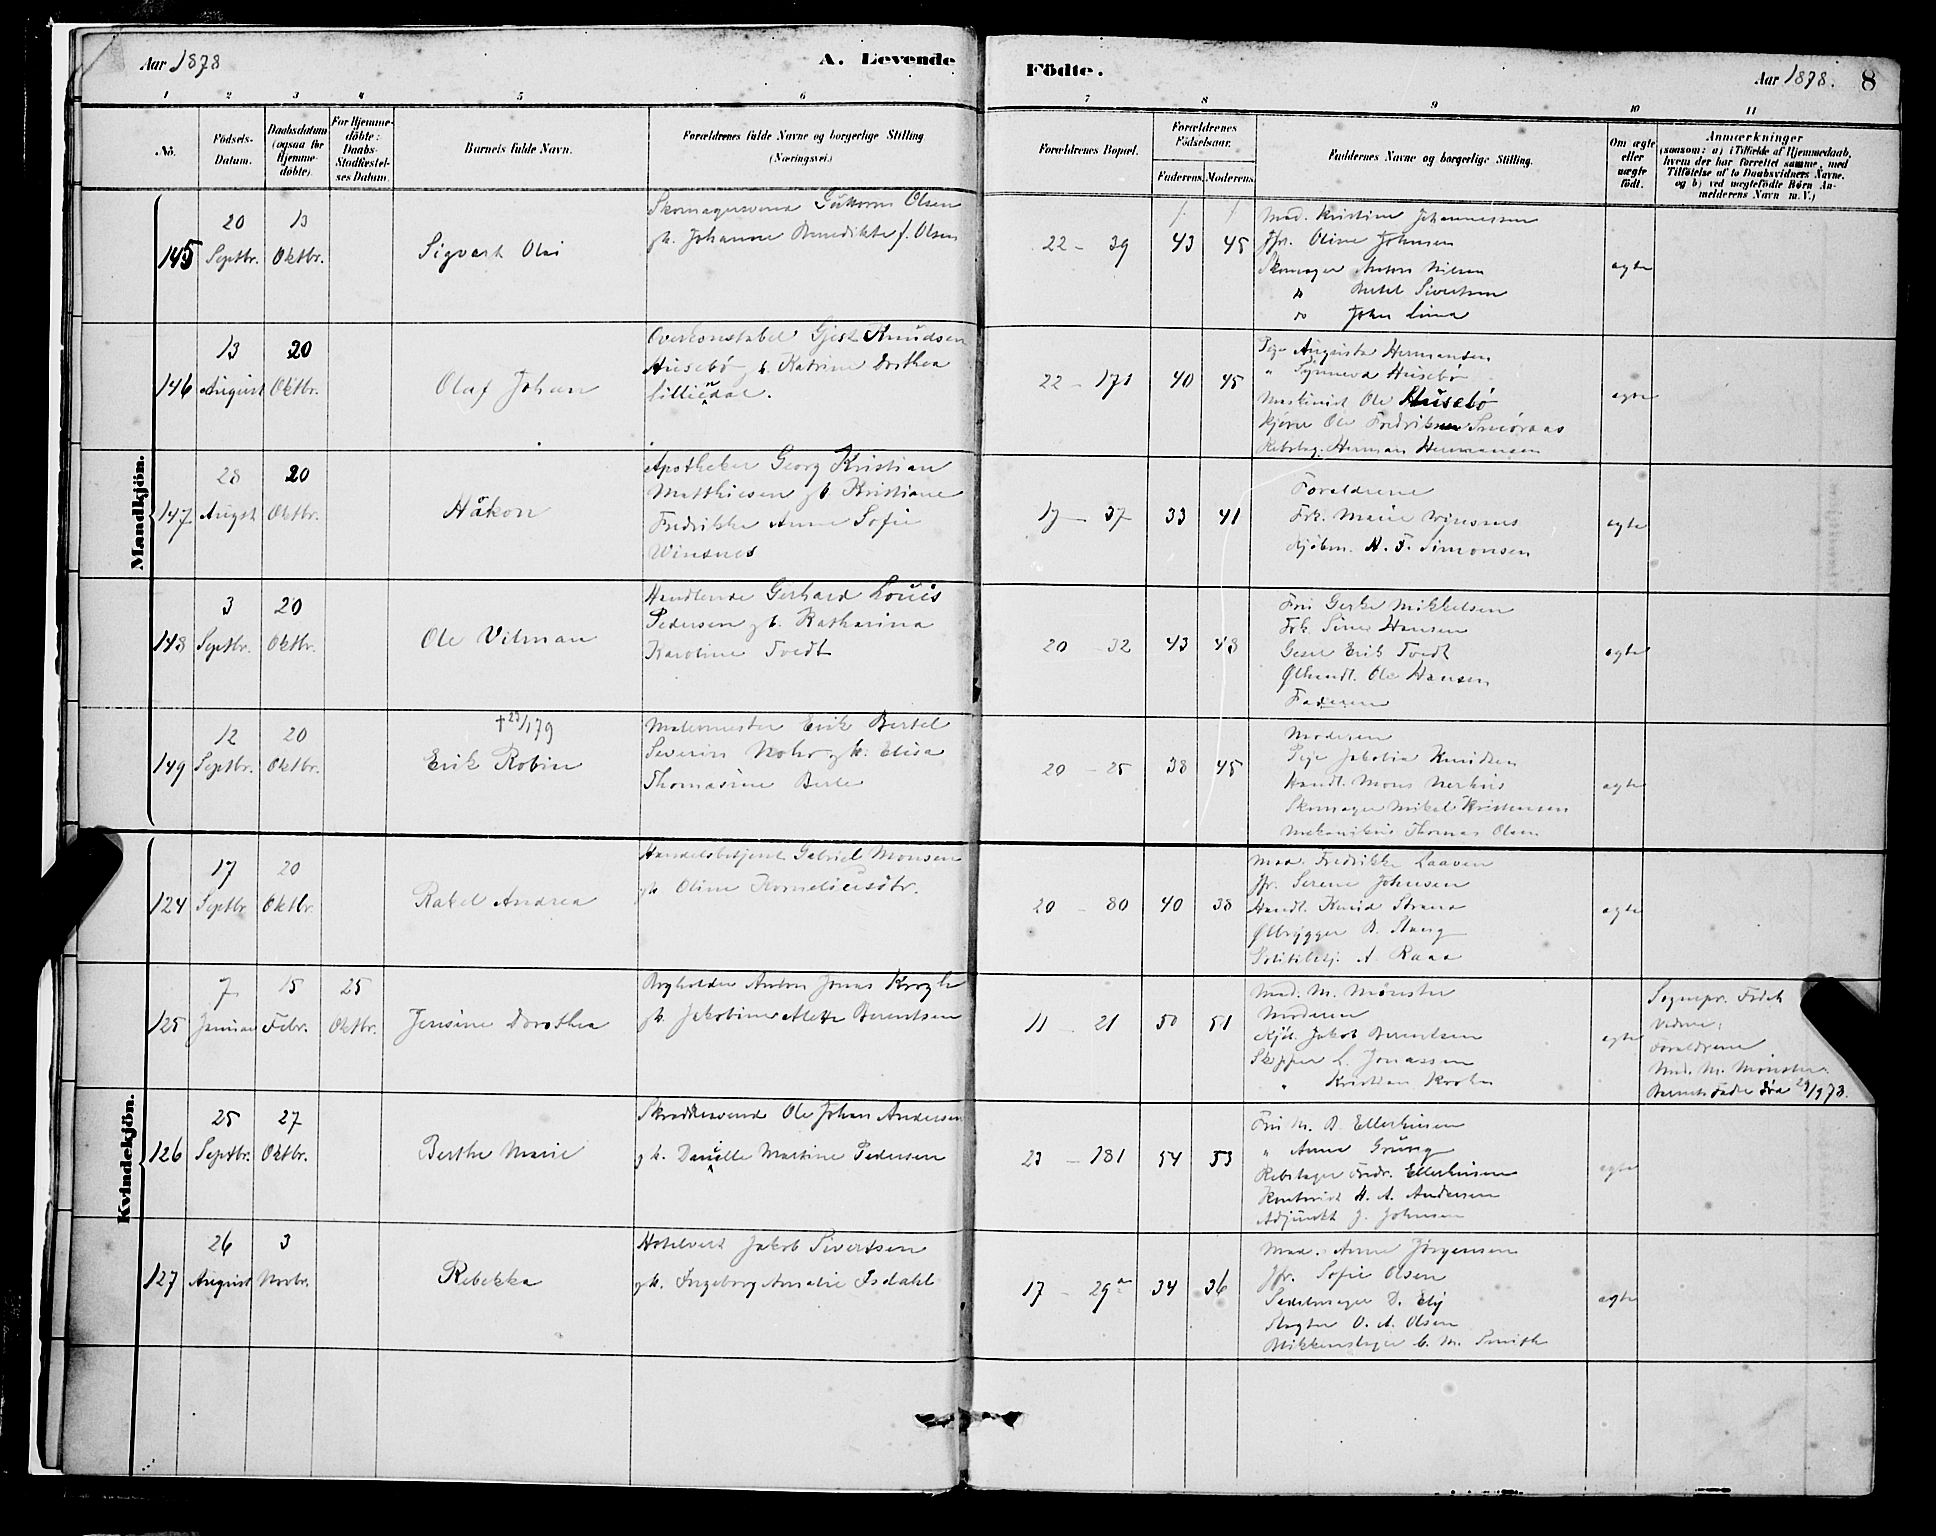 Aar 1878
A. Levende
Födte.
Aar 1878.
8
1 2 3 4 5 6 7 8 9 10 11
No.
Födsels-
Datum.
Daabsdatum
(ogsaa for
Hjemme-
döbte).
For Hjemme-
döbte:
Daabs-
Stadfæstel-
ses Datum.
Barnets fulde Navn.
Forældrenes fulde Navne og borgerlige Stilling
(Næringsvei.)
Forældrenes Bopæl.
Forældrenes
Födselsaar.
Faderens.
Moderens.
Faddernes Navne og borgerlige Stilling.
Om ægte
eller
uægte
födt.
Anmærkninger
(saasom: a) i Tilfælde af Hjemmedaab,
hvem der har forrettet samme, med
Tilföielse af to Daabsvidners Navne,
og b) ved uægtefödte Börn An-
melderens Navn m.V.)
Mandkjön.
145
20
Septbr.
13
Oktbr.
Sigvart Olai
Skomagersvend Guttorm Olsen
gh. Johanne Benedikte f. Olsen
22 - 39
43
45
Mad. Kristine Johannessen
Jfr. Oline Johnsen
Skomager Anton Nilsen
" Bertel Sivertsen
" John Lima
ægte
146
13
August
20
Oktbr.
Olaf Johan
Overkonstabel Gjert Knudsen
Husebø g.h. Katrine Dorthea
Lilliendal.
22 - 171
40
45
Pige Augusta Hermansen
" Synneva Husebø
Maskinist Ole Husebø
Kjører Ole Fredriksen Smøraas
Rebslag. Herman Hermansen
ægte
147
28
Augst
20
Oktbr.
Håkon
Apotheker Georg Kristian
Matthiesen gh Kristiane
Fredrikke Anne Sofie
Winsnes
17 - 37
33
41
Foreldrene
Frk. Marie Winsnes
Kjøbm. H. F. Simonsen
ægte
148
3
Septbr.
20
Oktbr.
Ole Vilman
Handlende Gerhard Louis
Pedersen gh. Katharina
Karoline Tvedt
20 - 32
43
48
Fru Gerke Mikkelsen
Frk. Sina Hansen
Gesel Erik Tvedt
Ølhandl. Ole Hansen
Faderen
ægte
149
12
Septbr.
20
Oktbr.
† 27/1 79
Erik Robin
Malermester Erik Bertel
Severin Nohr gh. Elisa
Thomasine Berle
20 - 25
38
45
Moderen
Pige Jakobia Knudsen
Handl. Mons Nerhus
Skomager Mikal Kristensen
Mekanikus Thomas Olsen
ægte
Kvindekjön.
124
17
Septbr
20
Oktbr.
Rakel Andrea
Handelsbetjent Gabriel Monsen
gh Oline Korneliusdtr.
20 - 80
40
38
Mad. Fredrikke Laaven
Jfr. Serene Johnsen
Handl. Knud Strand
Ølbrygger B. Sturg
Politibetj. A. Raaa
ægte
125
7
Januar
15
Febr.
25
Oktbr.
Jensine Dorothea
Bryholder Anton Jonas Krogh
gh. Jakobine Alette Berentsen
11 - 21
50
51
Mad. M. Mønster
Moderen
Kjd. Jakob Berentsen
Skipper L. Jonassen
" Kristian Krohn
ægte
Sognepr. Fidet
Vidner:
Foreldrene
Mad. M. Mønster.
Barnets Fader død 29/9 78.
126
25
Septbr.
27
Oktbr.
Berthe Marie
Skreddersvend Ole Johan Andersen
gh. Danielle Martine Pedersen
23 - 181
54
53
Fru M. B. Ellerhusen
" Anna Grung
Rebslager Fredr. Ellerhusen
Kontorist H. A. Andersen
Adjunkt J. Johnsen
ægte
127
26
August
3
Novbr.
Rebekka
Hotelvert Jakob Sivertsen
gh. Ingeborg Amalie Isdahl
17 - 29a
34
36
Mad. Anne Jørgensen
Jfr. Sofie Olsen
Sadelmager D. Elg
Slagter O. A. Olsen
Blikkenslager C. M. Smith
ægte